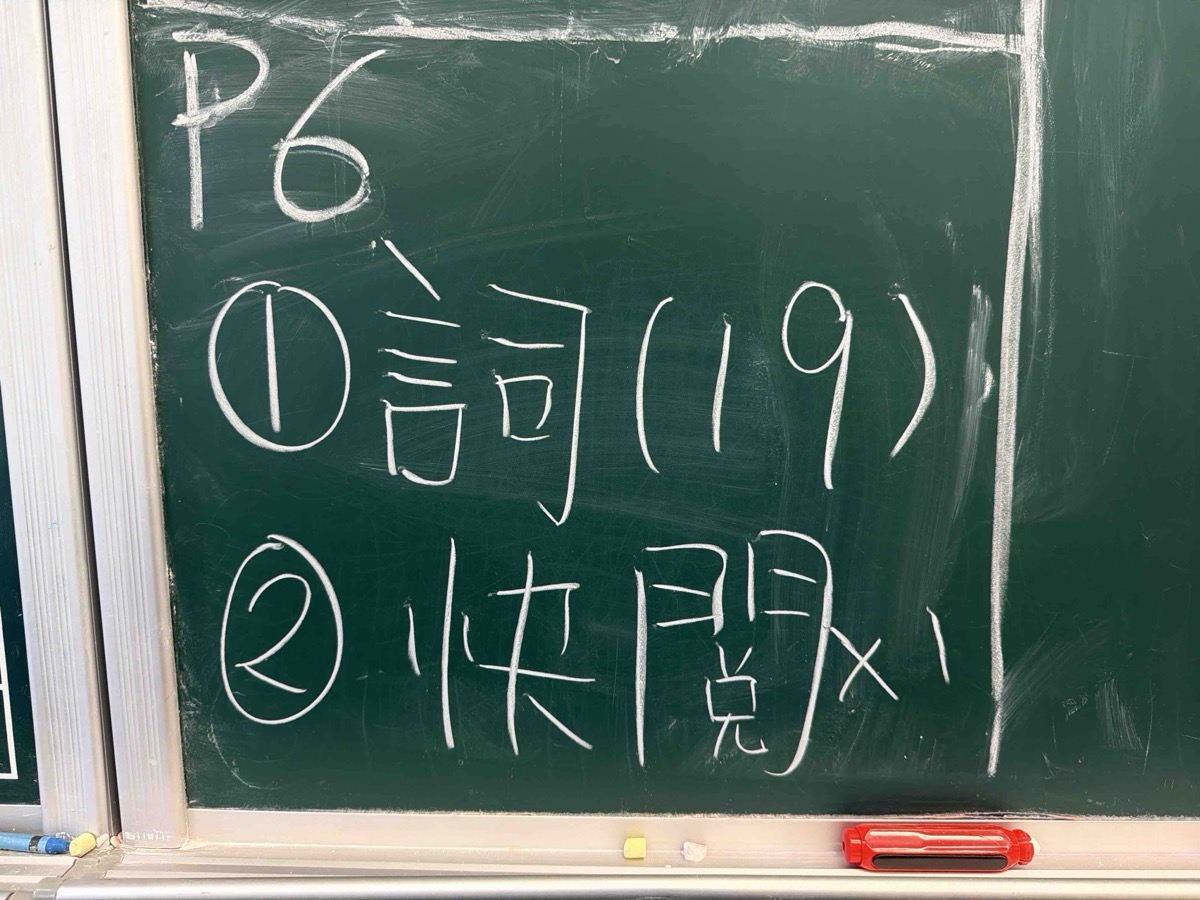 P6
①詞(19)
②快閱x1